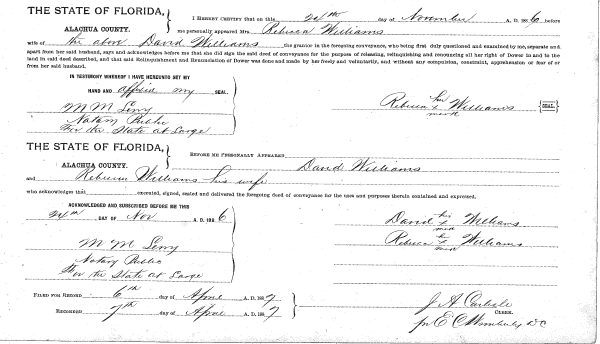 THE STATE OF FLORIDA,
ALACHUA COUNTY.
I HEREBY CERTIFY that on this 24th day of November A. D. 188 6 before
me personally appeared Mrs Rebecca Williams
wife of the above David Williams the grantor in the foregoing conveyance, who being first duly questioned and examined by me, separate and
apart from her said husband, says and acknowledges before me that she did sign the said deed of conveyance for the purpose of releasing, relinquishing and renouncing all her right of Dower in and to the
land in said deed described, and that said Relinquishment and Renunciation of Dower was done and made by her freely and voluntarily, and without any compulsion, constraint, apprehension or fear of or
from her said husband.
IN TESTIMONY WHEREOF I HAVE HEREUNTO SET MY
HAND AND affixed my SEAL.
M M Levy
Notary Public
For the State at Large
Rebecca her x mark Williams SEAL.
THE STATE OF FLORIDA,
ALACHUA COUNTY.
BEFORE ME PERSONALLY APPEARED David Williams
and Rebecca Williams his wife
who acknowledges that executed, signed, sealed and delivered the foregoing deed of conveyance for the uses and purposes therein contained and expressed.
ACKNOWLEDGED AND SUBSCRIBED BEFORE ME THIS
24th DAY OF Nov A. D. 188 6
M M Levy
Notary Public
For the State at Large
David his x mark Williams
Rebecca her x mark Williams
FILED FOR RECORD 6th day of April A. D. 188 7
RECORDED 7th day of April A. D. 188 7
J A Carlisle
CLERK.
pr E C Wimberly DC